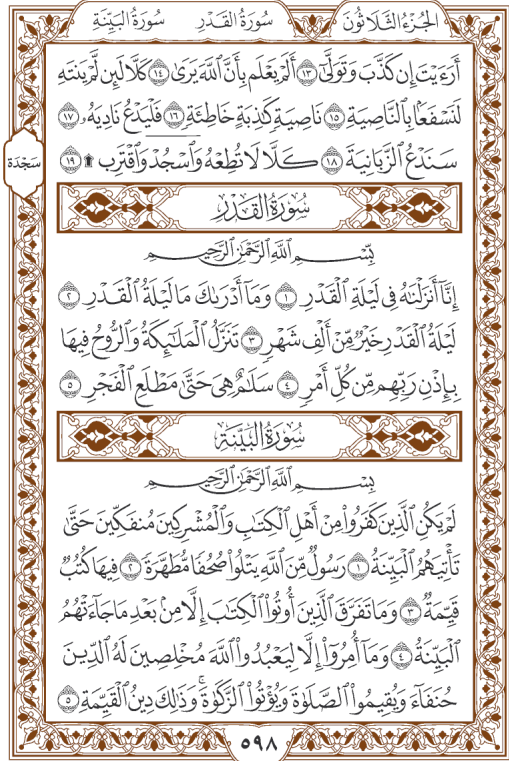 الجُزْءُ الثَّلَاثُونَ سُورَةُ القَدْرِ سُورَةُ البَيِّنَةِ
أَرَءَيْتَ إِن كَذَّبَ وَتَوَلَّىٰٓ ۝١٣ أَلَمْ يَعْلَم بِأَنَّ ٱللَّهَ يَرَىٰ ۝١٤ كَلَّا لَئِن لَّمْ يَنتَهِ
لَنَسْفَعًۢا بِٱلنَّاصِيَةِ ۝١٥ نَاصِيَةٍ كَٰذِبَةٍ خَاطِئَةٍ ۝١٦ فَلْيَدْعُ نَادِيَهُۥ ۝١٧
سَنَدْعُ ٱلزَّبَانِيَةَ ۝١٨ كَلَّا لَا تُطِعْهُ وَٱسْجُدْ وَٱقْتَرِب ۩ ۝١٩
سَجْدَة
سُورَةُ القَدْرِ
بِسْمِ ٱللَّهِ ٱلرَّحْمَٰنِ ٱلرَّحِيمِ
إِنَّآ أَنزَلْنَٰهُ فِى لَيْلَةِ ٱلْقَدْرِ ۝١ وَمَآ أَدْرَىٰكَ مَا لَيْلَةُ ٱلْقَدْرِ ۝٢
لَيْلَةُ ٱلْقَدْرِ خَيْرٌ مِّنْ أَلْفِ شَهْرٍ ۝٣ تَنَزَّلُ ٱلْمَلَٰٓئِكَةُ وَٱلرُّوحُ فِيهَا
بِإِذْنِ رَبِّهِم مِّن كُلِّ أَمْرٍ ۝٤ سَلَٰمٌ هِىَ حَتَّىٰ مَطْلَعِ ٱلْفَجْرِ ۝٥
سُورَةُ البَيِّنَةِ
بِسْمِ ٱللَّهِ ٱلرَّحْمَٰنِ ٱلرَّحِيمِ
لَمْ يَكُنِ ٱلَّذِينَ كَفَرُوا۟ مِنْ أَهْلِ ٱلْكِتَٰبِ وَٱلْمُشْرِكِينَ مُنفَكِّينَ حَتَّىٰ
تَأْتِيَهُمُ ٱلْبَيِّنَةُ ۝١ رَسُولٌ مِّنَ ٱللَّهِ يَتْلُوا۟ صُحُفًا مُّطَهَّرَةً ۝٢ فِيهَا كُتُبٌ
قَيِّمَةٌ ۝٣ وَمَا تَفَرَّقَ ٱلَّذِينَ أُوتُوا۟ ٱلْكِتَٰبَ إِلَّا مِنۢ بَعْدِ مَا جَآءَتْهُمُ
ٱلْبَيِّنَةُ ۝٤ وَمَآ أُمِرُوٓا۟ إِلَّا لِيَعْبُدُوا۟ ٱللَّهَ مُخْلِصِينَ لَهُ ٱلدِّينَ
حُنَفَآءَ وَيُقِيمُوا۟ ٱلصَّلَوٰةَ وَيُؤْتُوا۟ ٱلزَّكَوٰةَ ۚ وَذَٰلِكَ دِينُ ٱلْقَيِّمَةِ ۝٥
٥٩٨